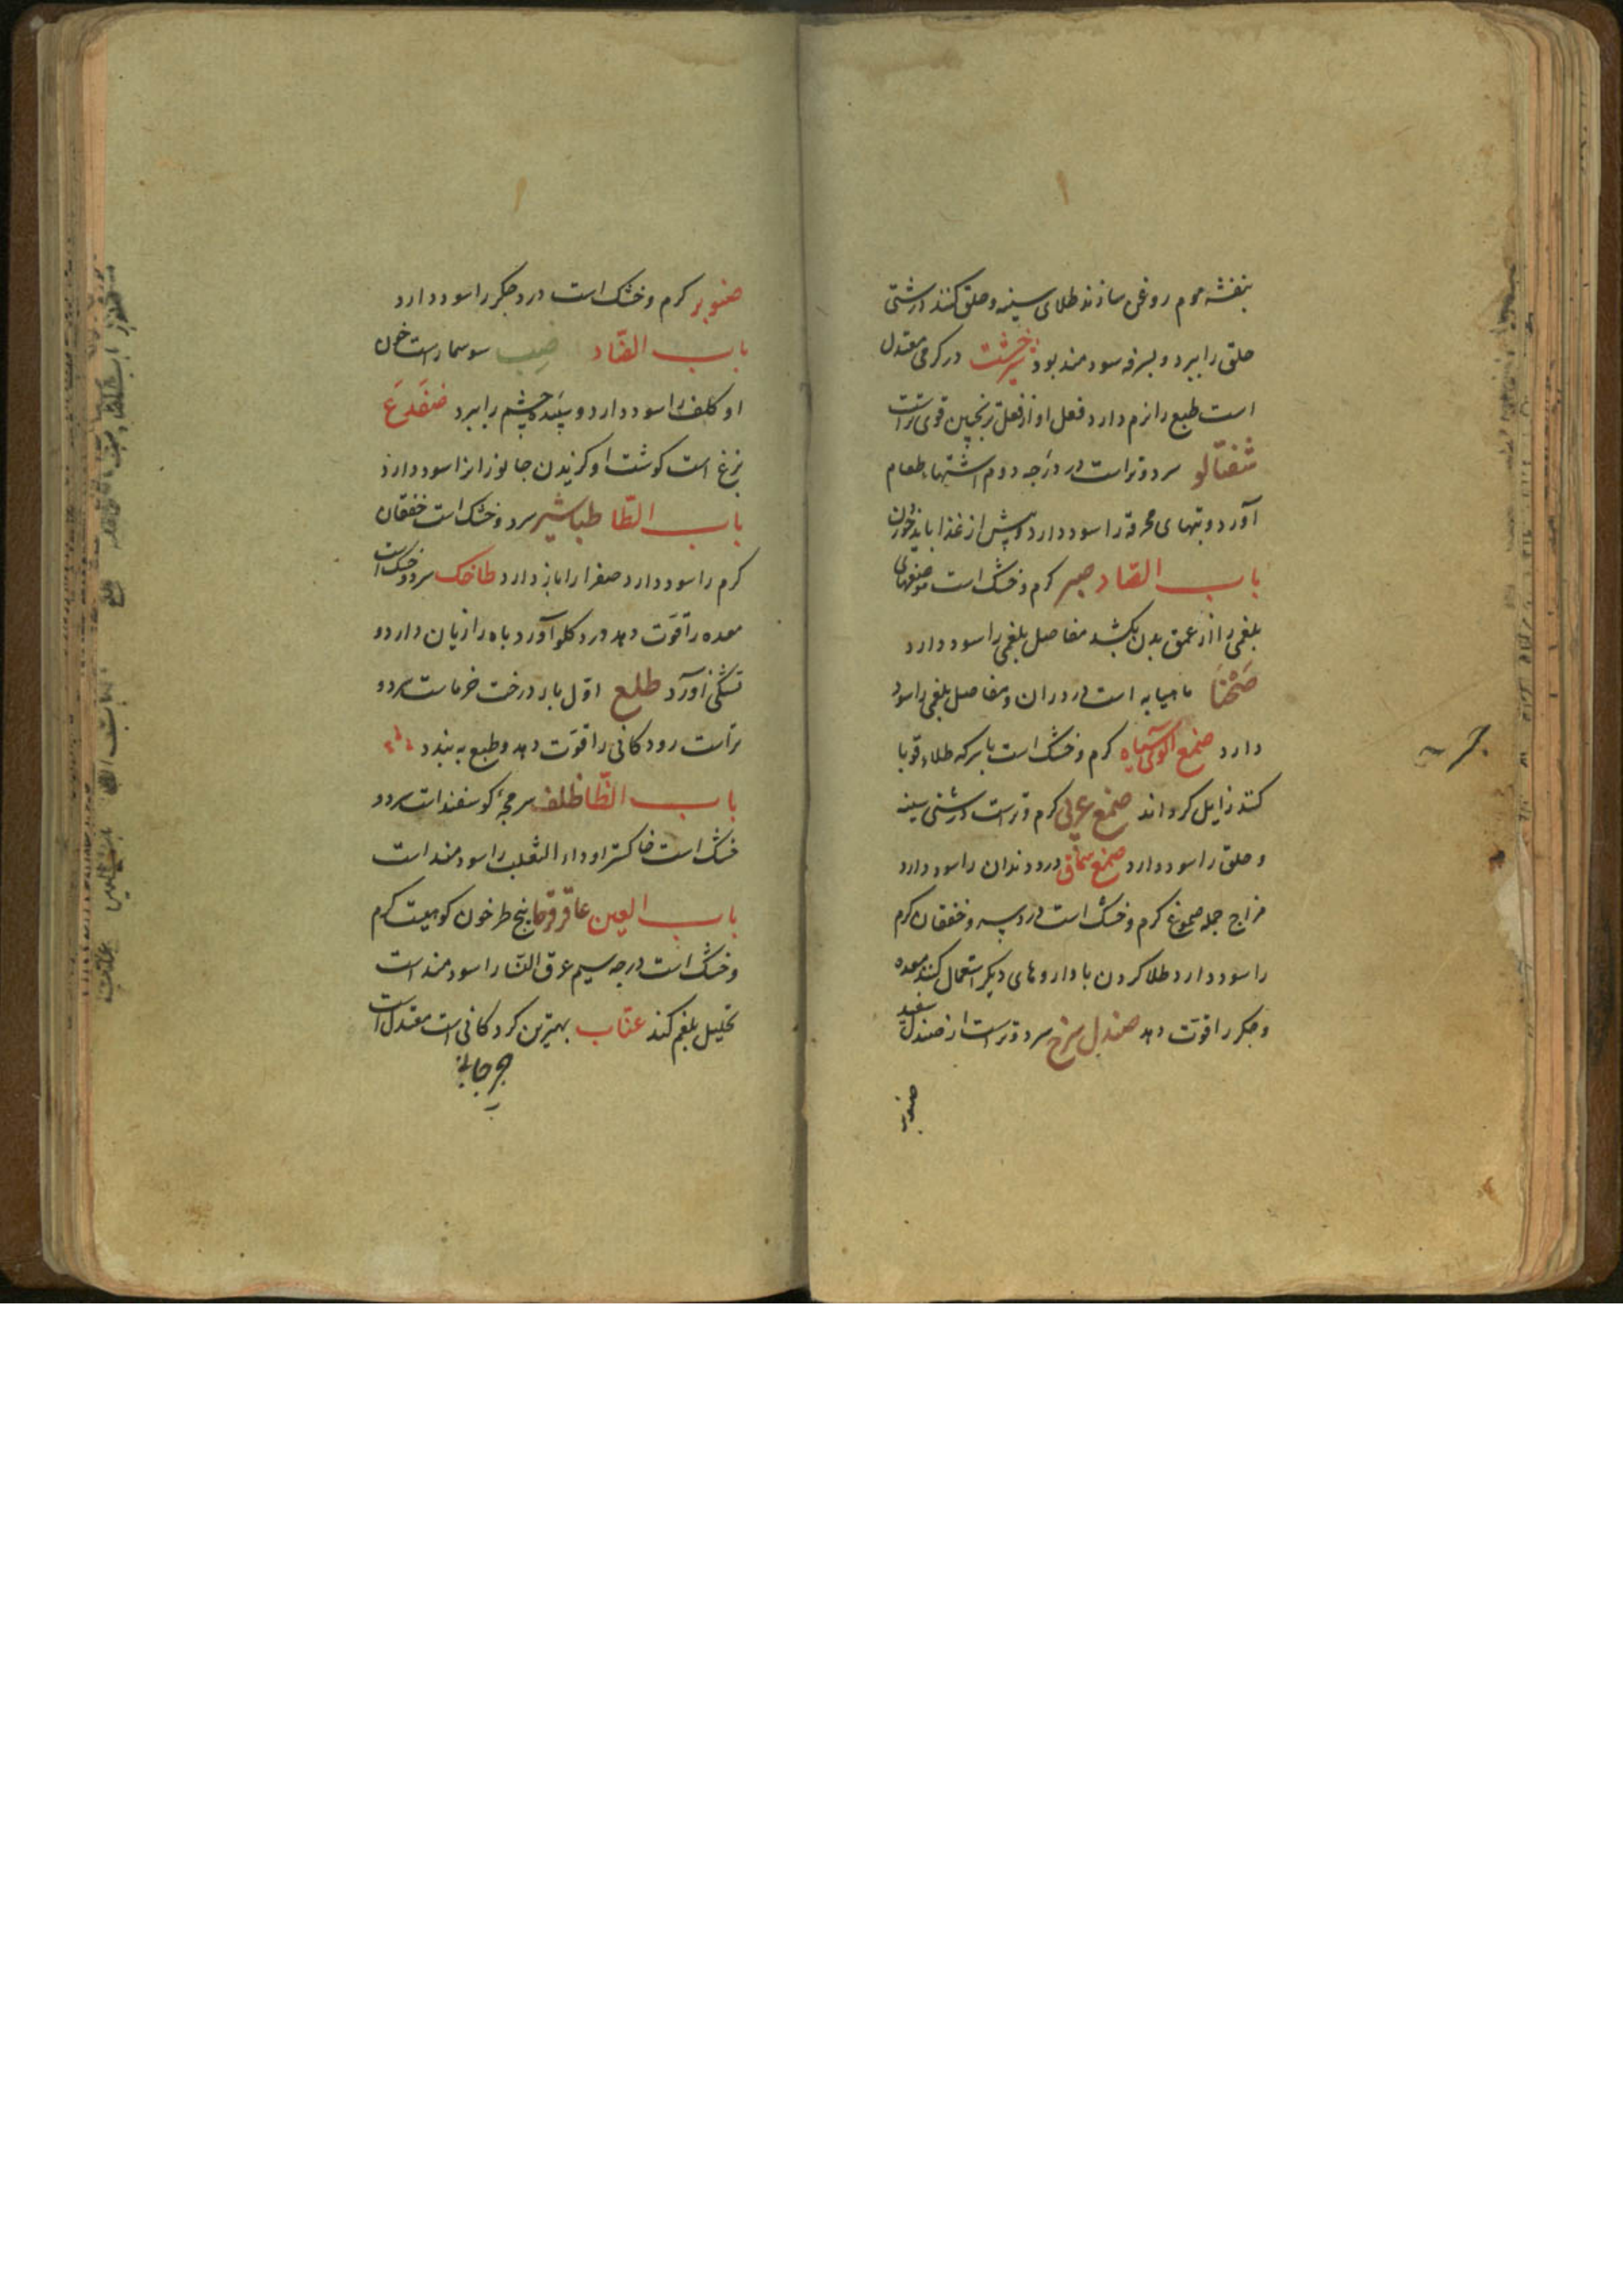 بنفشه موم روغن سازند طلای سینه و حلق کنند درشتی
حلق را ببرد و بسرفه سودمند بود شیرخشت در کرمی معتدل
است طبع را نرم دارد فعل او از فعل ترنجبین قوی تر است
شفتالو سرد و تر است در درجه دوم اشتهاء طعام
آورد و تبهای محرقه را سود دارد و پیش از غذا باید خوردن
باب الصاد صبر کرم و خشک است
بلغمی را از عمق بدن بکشد مفاصل بلغمی را سود دارد
صحنا ماهیابه است درد ران و مفاصل بلغمی را سود
دارد صمغ آلوی سیاه کرم و خشک است با سرکه طلاء قوبا
کنند زایل کرداند صمغ عربی کرم و تر است درشتی سینه
و حلق را سود دارد صمغ سماق درد دندان را سود دارد
مزاج جمله صموغ کرم و خشک است و خفقان کرم
را سود دارد طلا کردن با داروهای دیکر استعمال کنند معده
و جکر را قوت دهد صندل سرخ سرد و تر است از صندل سفید
صنوبر
صنوبر کرم و خشک است درد جکر را سود دارد
باب الضاد ضب سوسمار است خون
او کلف را سود دارد و سپیده چشم را ببرد ضفدع
بزغ است کوشت او کزیدن جانوران را سود دارد
باب الطا طباشیر سرد و خشک است خفقان
کرم را سود دارد صفرا را باز دارد سرد و خشک است
معده را قوت دهد درد کلو آورد باه را زیان دارد و
تشنکی آورد طلع اول بار درخت خرماست سرد و
تر است رودکانی را قوت دهد و طبع به بندد
باب الظا ظلف کوسفند است سرد و
خشک است خاکستر او داء الثعلب را سودمند است
باب العین عاقرقرحا بیخ طرخون کوهیست کرم
و خشک است درجه سیم عرق النسا را سودمند است
تحلیل بلغم کند عناب بهترین کردکانی است معتدل است
جرجانی